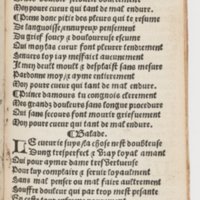 Mon poure cueur qui tant de mal endure.
Prens donc pitie des pleurs qui te resume
De languissãt, ennuyeux pensement
Du grief soucy & douloureuse
Qui mon las cueur font plourer tendrement
Enuers toy iay meffaict aucunement
Il men deult moult & desplaist sans mesure
Pardonne moy, & ayme entierement
Mon poure cueur qui tant de mal endure.
Prince damours ta congnois clerement
Mes grandz douleurs sans longue procedure
Qui sans secours font mourir griefuement
Mon poure cueur qui tant de mal endure.
Balade.
Le cueur
Dung tresparfect & vray loyal amant
Qui pour aymer dame tresvertueuse
Pour luy complaire & seruir loyaulment
Sans mal penser ou mal faire aultrement
Souffre douleur qui par trop mest pesant
En